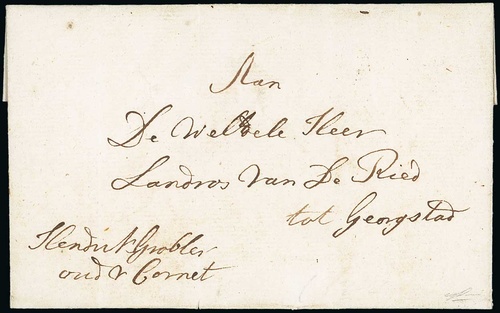 Aan
De Weledele Heer
Landros Van De Ried
tot Georgstad
Hendrik Grobler
oud V Cornet